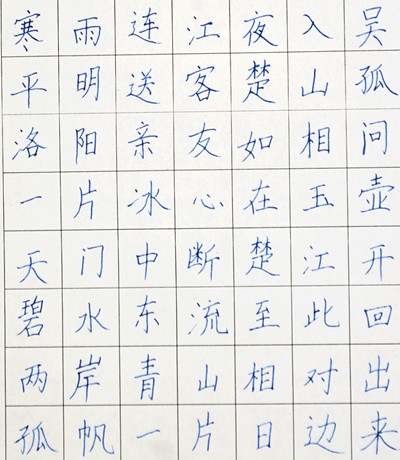 寒雨连江夜入吴
平明送客楚山孤
洛阳亲友如相问
一片冰心在玉壶
天门中断楚江开
碧水东流至此回
两岸青山相对出
孤帆一片日边来